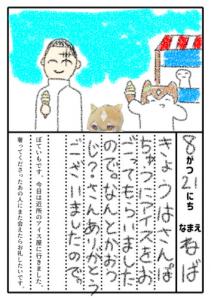 8がつ21にち
なまえ ねば
きょうはさんぽ
ちゅうにアイスをお
ごってもらいました
ので。なんとかおう
じ？さんありがとう
ございましたので。
ぼていもです。今日は近所のアイス屋に行きました。
奢ってくださったあの人にまた会えたらお礼したいです。